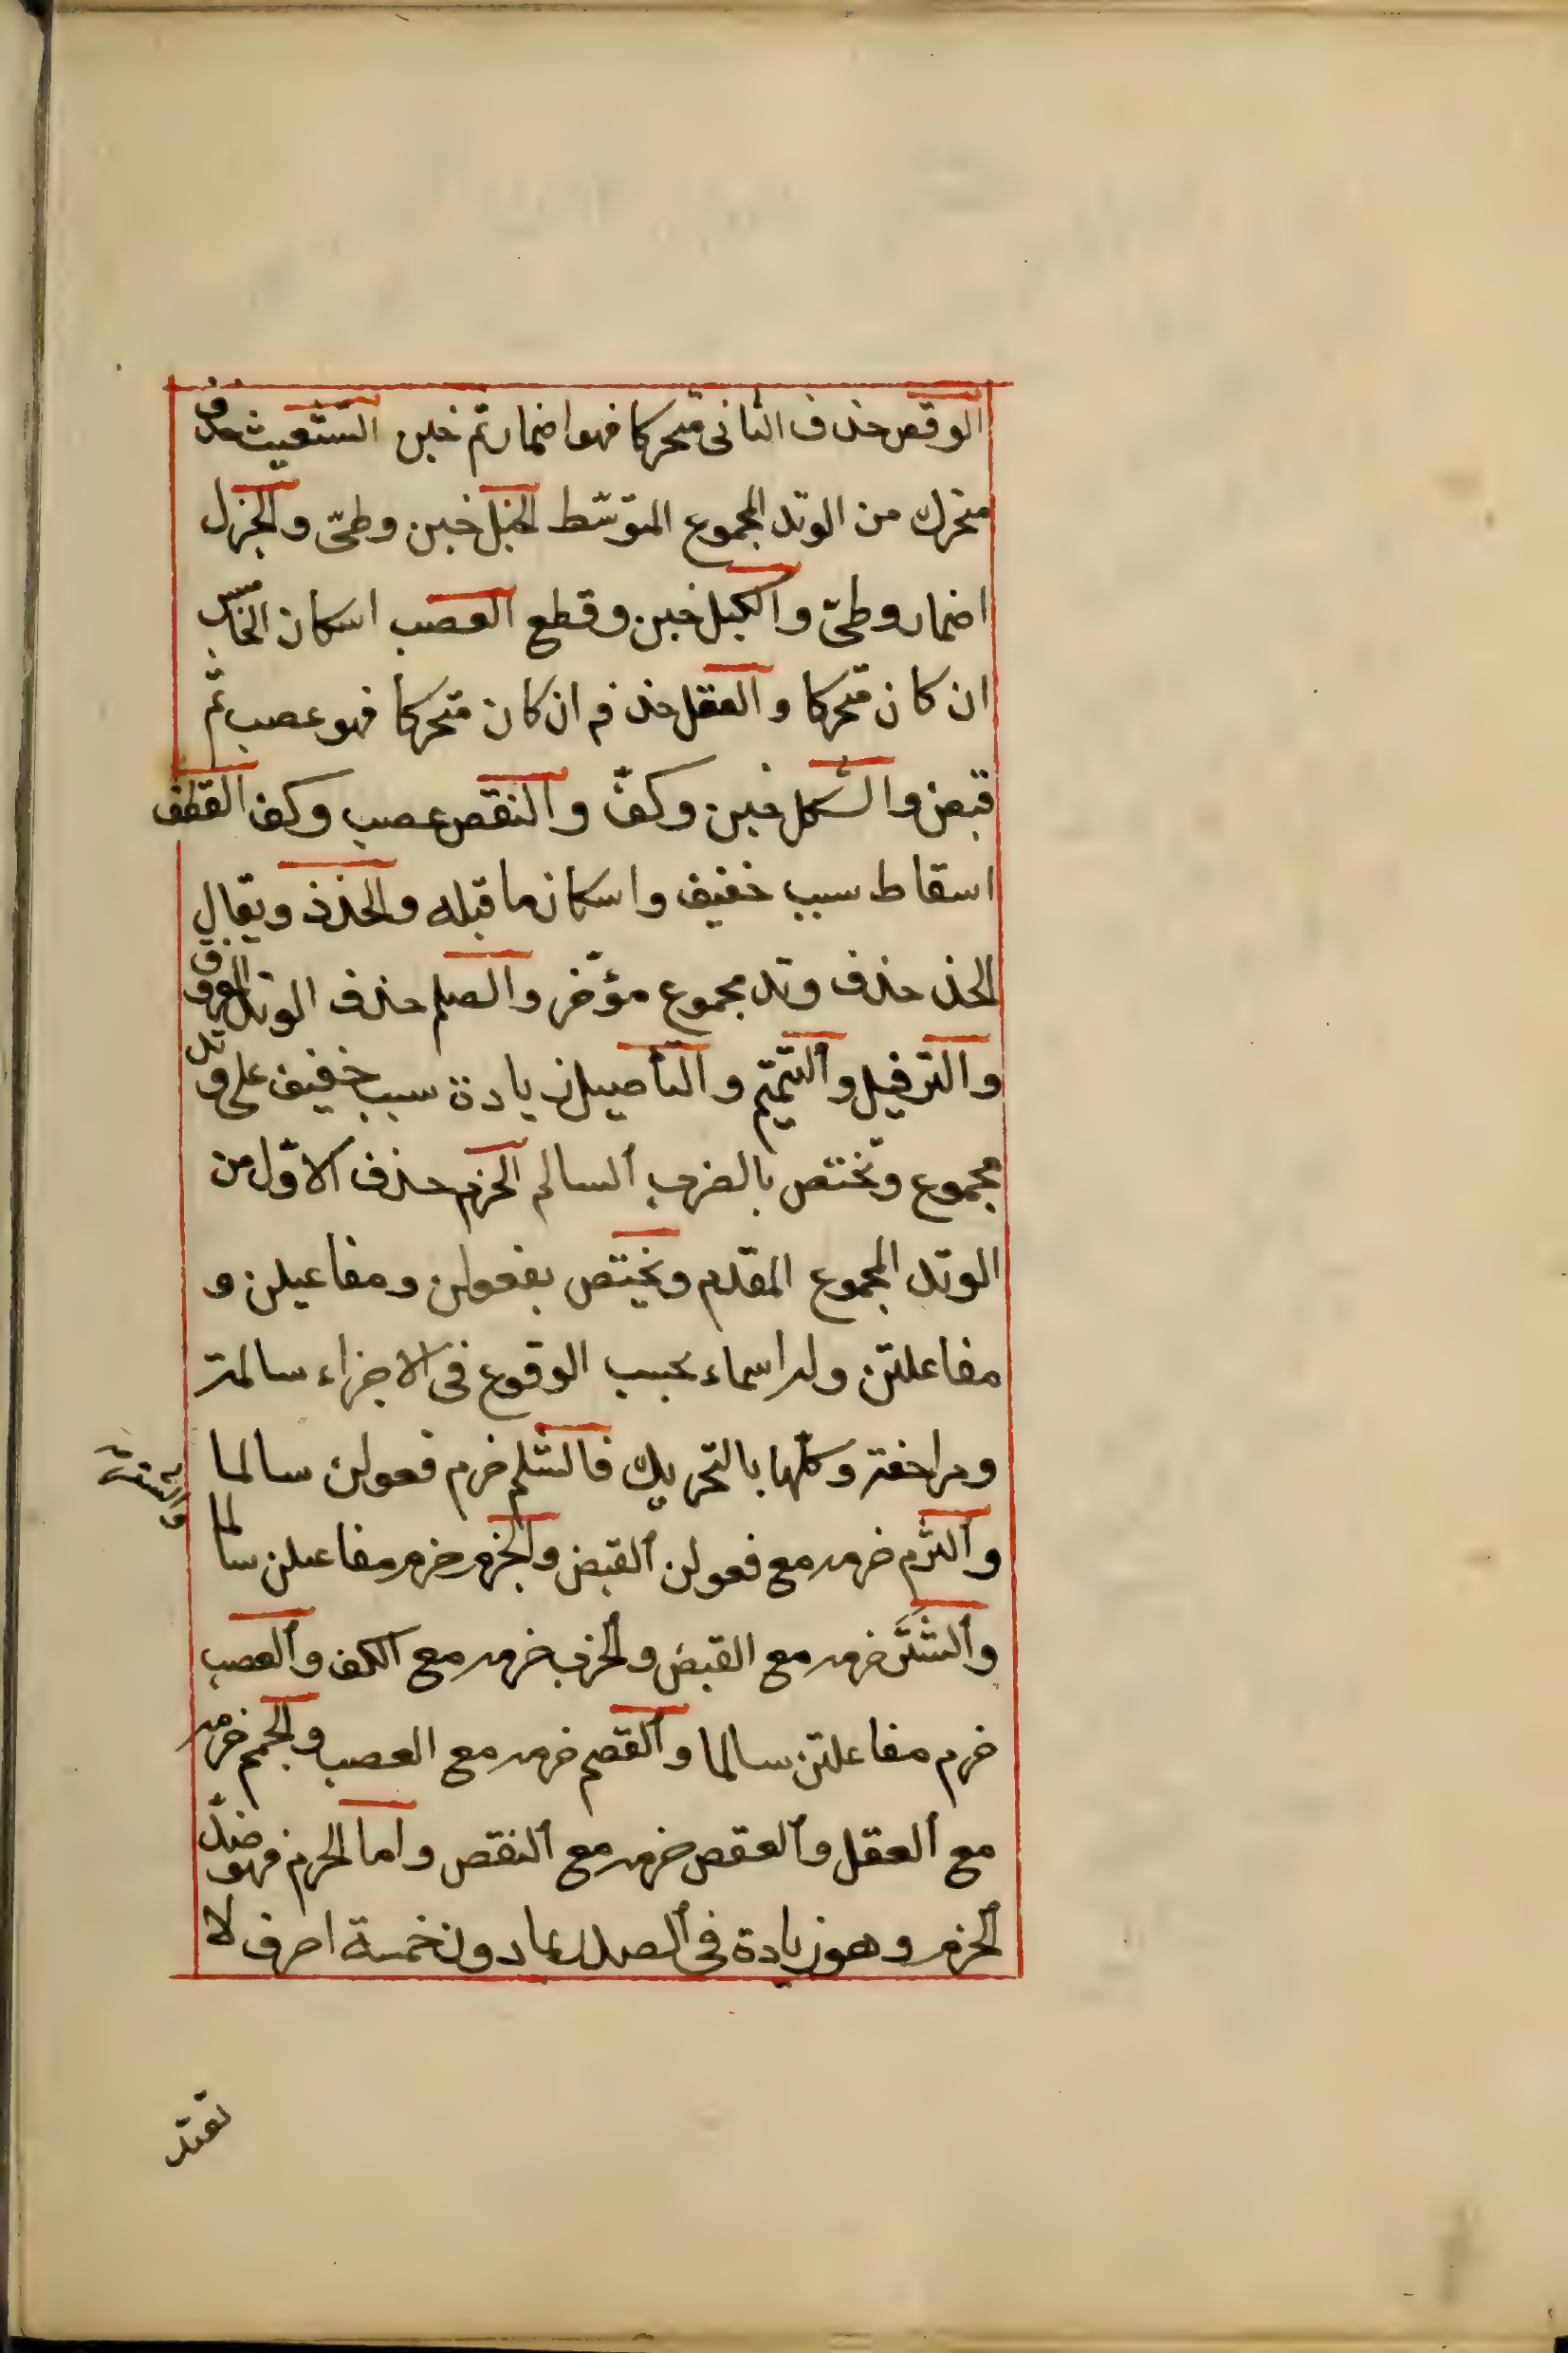 الوقص حذف الثانى متحركا فهو اضمار ثم خبن التشعيث حذف
متحرك من الوتد المجموع المتوسّط الخبل خبن وطىّ والجزل
اضمار وطىّ والكبل خبن وقطع العصب اسكان الخامس
ان كان متحركا والعقل حذفه ان كان متحركا فهو عصب ثم
قبض والشكل خبن وكفّ والنقص عصب وكف القطف
اسقاط سبب خفيف واسكان ما قبله والحذذ ويقال
الحذ حذف وتد مجموع مؤخر والصلم حذف الوتد المفروق
والترفيل والتتميم والتأصيل زيادة سبب خفيف على وتد
مجموع وتختص بالضرب السالم الخرم حذف الاوّل من
الوتد المجموع المقدم ويختص بفعولن ومفاعيلن و
مفاعلتن وله اسماء بحسب الوقوع فى الاجزاء سالمة
ومزاحفة وكلّها بالتحريك فالثلم خرم فعولن سالما
والثرم خرمه مع فعولن القبض والخرم خرم مفاعيلن سالما
والشتر خرمه مع القبض والخرب خرمه مع الكف والعصب
خرم مفاعلتن سالما والقصم خرمه مع العصب والجمم خرمه
مع العقل والعقص خرمه مع النقص واما الخزم فهو ضدّ
الخرم وهو زيادة فى الصدر بما دون خمسة احرف لا